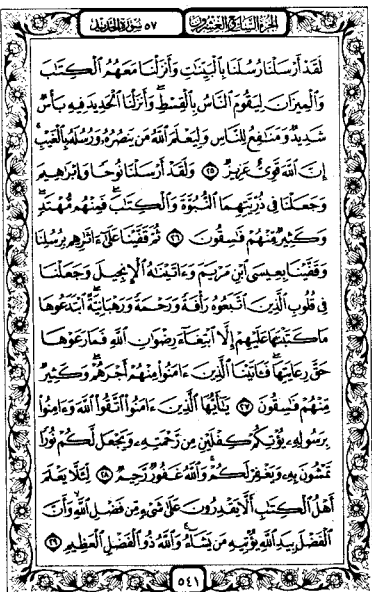 الجزء السابع والعشرون
٥٧ سورة الحديد
لَقَدْ أَرْسَلْنَا رُسُلَنَا بِٱلْبَيِّنَٰتِ وَأَنزَلْنَا مَعَهُمُ ٱلْكِتَٰبَ
وَٱلْمِيزَانَ لِيَقُومَ ٱلنَّاسُ بِٱلْقِسْطِ ۖ وَأَنزَلْنَا ٱلْحَدِيدَ فِيهِ بَأْسٌ
شَدِيدٌ وَمَنَٰفِعُ لِلنَّاسِ وَلِيَعْلَمَ ٱللَّهُ مَن يَنصُرُهُۥ وَرُسُلَهُۥ بِٱلْغَيْبِ ۚ
إِنَّ ٱللَّهَ قَوِىٌّ عَزِيزٌ ٢٥ وَلَقَدْ أَرْسَلْنَا نُوحًا وَإِبْرَٰهِيمَ
وَجَعَلْنَا فِى ذُرِّيَّتِهِمَا ٱلنُّبُوَّةَ وَٱلْكِتَٰبَ ۖ فَمِنْهُم مُّهْتَدٍ ۖ
وَكَثِيرٌ مِّنْهُمْ فَٰسِقُونَ ٢٦ ثُمَّ قَفَّيْنَا عَلَىٰٓ ءَاثَٰرِهِم بِرُسُلِنَا
وَقَفَّيْنَا بِعِيسَى ٱبْنِ مَرْيَمَ وَءَاتَيْنَٰهُ ٱلْإِنجِيلَ وَجَعَلْنَا
فِى قُلُوبِ ٱلَّذِينَ ٱتَّبَعُوهُ رَأْفَةً وَرَحْمَةً وَرَهْبَانِيَّةً ٱبْتَدَعُوهَا
مَا كَتَبْنَٰهَا عَلَيْهِمْ إِلَّا ٱبْتِغَآءَ رِضْوَٰنِ ٱللَّهِ فَمَا رَعَوْهَا
حَقَّ رِعَايَتِهَا ۖ فَـَٔاتَيْنَا ٱلَّذِينَ ءَامَنُوا۟ مِنْهُمْ أَجْرَهُمْ ۖ وَكَثِيرٌ
مِّنْهُمْ فَٰسِقُونَ ٢٧ يَٰٓأَيُّهَا ٱلَّذِينَ ءَامَنُوا۟ ٱتَّقُوا۟ ٱللَّهَ وَءَامِنُوا۟
بِرَسُولِهِۦ يُؤْتِكُمْ كِفْلَيْنِ مِن رَّحْمَتِهِۦ وَيَجْعَل لَّكُمْ نُورًا
تَمْشُونَ بِهِۦ وَيَغْفِرْ لَكُمْ ۚ وَٱللَّهُ غَفُورٌ رَّحِيمٌ ٢٨ لِّئَلَّا يَعْلَمَ
أَهْلُ ٱلْكِتَٰبِ أَلَّا يَقْدِرُونَ عَلَىٰ شَىْءٍ مِّن فَضْلِ ٱللَّهِ ۙ وَأَنَّ
ٱلْفَضْلَ بِيَدِ ٱللَّهِ يُؤْتِيهِ مَن يَشَآءُ ۚ وَٱللَّهُ ذُو ٱلْفَضْلِ ٱلْعَظِيمِ ٢٩
٥٤١